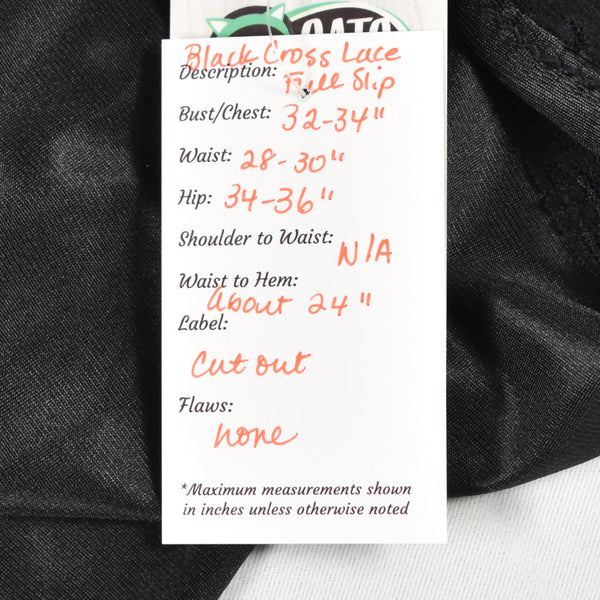 GATO
Black Cross Lace
Description: Full Slip
Bust/Chest: 32-34"
Waist: 28-30"
Hip: 34-36"
Shoulder to Waist:
N/A
Waist to Hem:
About 24"
Label:
Cut out
Flaws:
none
*Maximum measurements shown
in inches unless otherwise noted